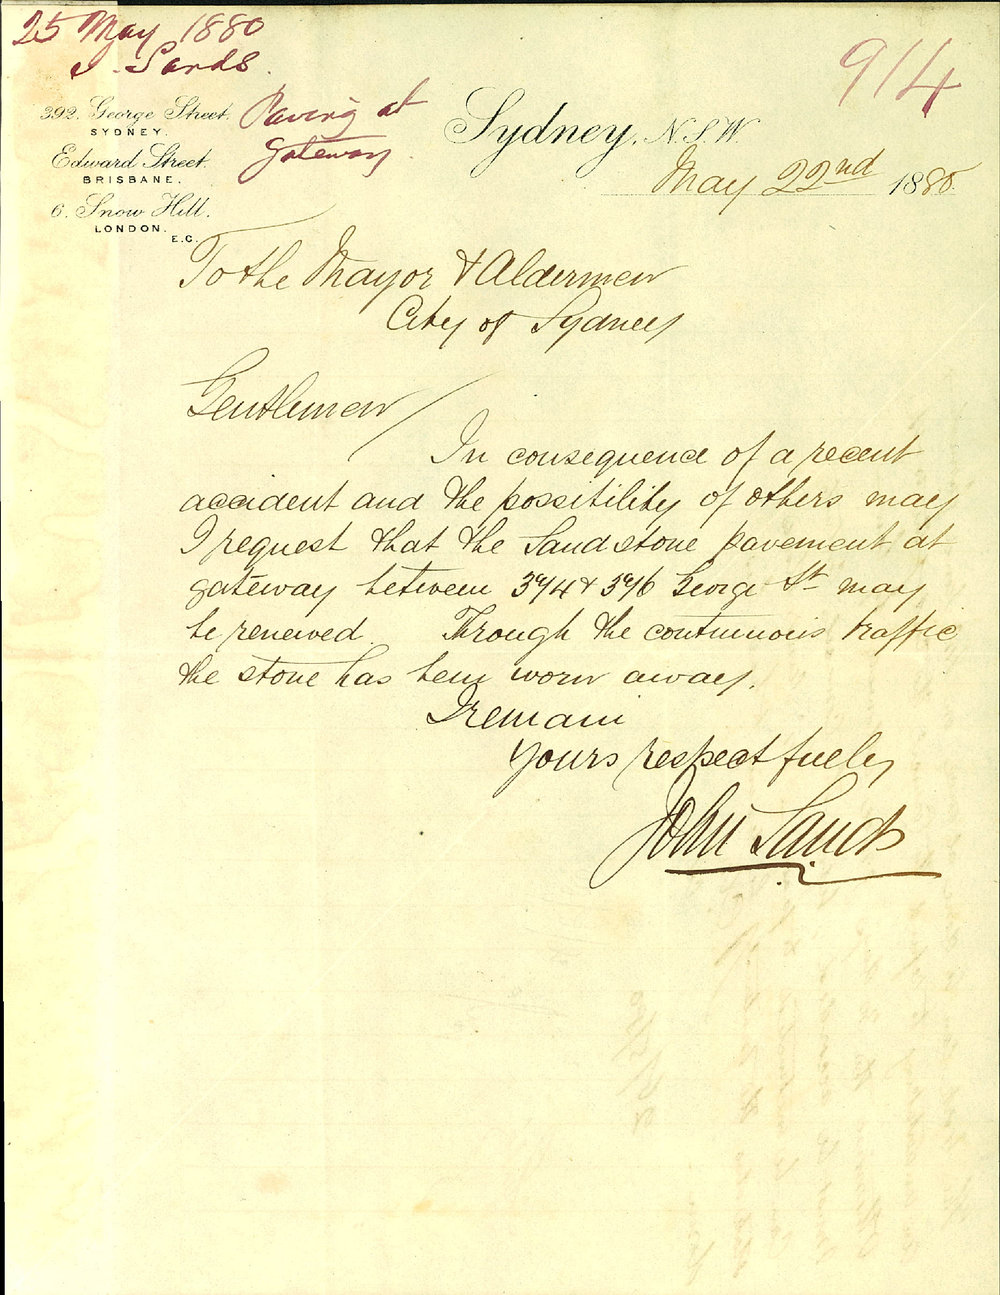 25 May 1880
J. Sands.
Paving at
gateway
914
392. George Street.
SYDNEY.
Edward Street.
BRISBANE.
6. Snow Hill.
LONDON.
E.C.
Sydney, N.S.W.
May 22nd 1880.
To the Mayor & Aldermen
City of Sydney
Gentlemen
In consequence of a recent
accident and the possibility of others may
I request that the Sandstone pavement at
gateway between 394 & 396 George St may
be renewed. Through the continuous traffic
the stone has been worn away.
I remain
Yours respectfully
John Sands